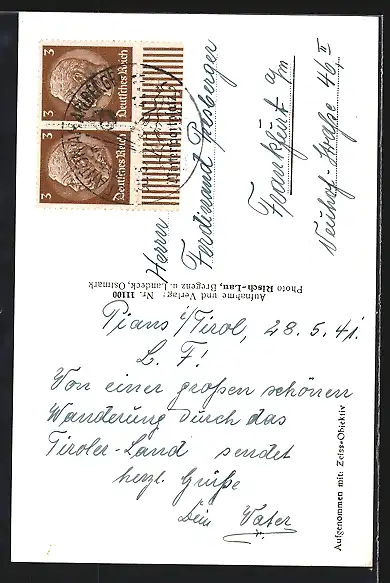 Pians i/Tirol, 28.5.41.
L. F!
Von einer großen schönen
Wanderung durch das
Tiroler-Land sendet
herzl. Grüße
Dein Vater
Aufnahme und Verlag: Nr. 11100
Photo Risch-Lau, Bregenz u. Landeck, Ostmark
Aufgenommen mit: Zeiss-Objektiv
Herrn
Ferdinand
Frankfurt a/m
Neuhof-Straße 46 II
3
Deutsches Reich
3
Deutsches Reich